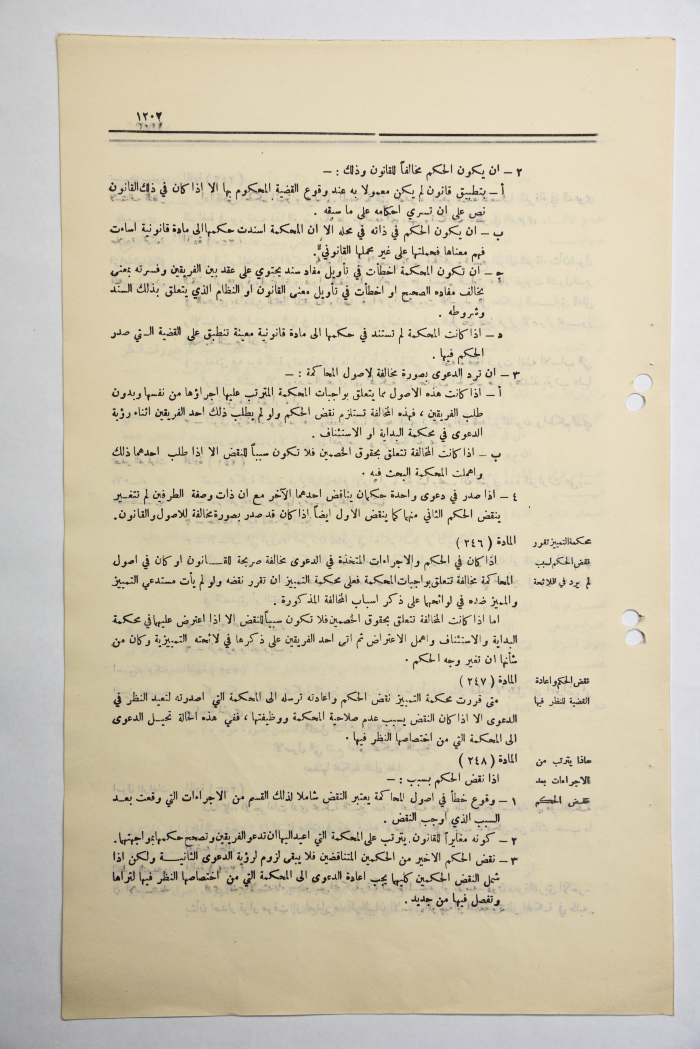 ١٢٠٢
٢ – ان يكون الحكم مخالفاً للقانون وذلك : –
أ – بتطبيق قانون لم يكن معمولا به عند وقوع القضية المحكوم بها الا اذا كان في ذلك القانون
نص على ان تسري احكامه على ما سبقه .
ب – ان يكون الحكم في ذاته في محله الا ان المحكمة اسندت حكمها الى مادة قانونية اساءت
فهم معناها فحملتها على غير محملها القانوني .
ج – ان تكون المحكمة اخطأت في تأويل مفاد سند يحتوي على عقد بين الفريقين وفسرته بمعنى
يخالف مفاده الصحيح او اخطأت في تأويل معنى القانون او النظام الذي يتعلق بذلك السند
وشروطه .
د – اذا كانت المحكمة لم تستند في حكمها الى مادة قانونية معينة تنطبق على القضية التي صدر
الحكم فيها .
٣ – ان ترد الدعوى بصورة مخالفة لاصول المحاكمة : –
أ – اذا كانت هذه الاصول مما يتعلق بواجبات المحكمة المترتب عليها اجراؤها من نفسها وبدون
طلب الفريقين ، فهذه المخالفة تستلزم نقض الحكم ولو لم يطلب ذلك احد الفريقين اثناء رؤية
الدعوى في محكمة البداية او الاستئناف .
ب – اذا كانت المخالفة تتعلق بحقوق الخصمين فلا تكون سبباً للنقض الا اذا طلب احدهما ذلك
واهملت المحكمة البحث فيه .
٤ – اذا صدر في دعوى واحدة حكمان يناقض احدهما الآخر مع ان ذات وصفة الطرفين لم تتغير
ينقض الحكم الثاني منهما كما ينقض الاول ايضاً اذا كان قد صدر بصورة مخالفة للاصول والقانون .
محكمة التمييز تقرر
نقض الحكم لسبب
لم يرد في اللائحة
المادة ( ٢٤٦ )
اذا كان في الحكم والاجراءات المتخذة في الدعوى مخالفة صريحة للقانون او كان في اصول
المحاكمة مخالفة تتعلق بواجبات المحكمة فعلى محكمة التمييز ان تقرر نقضه ولو لم يأت مستدعي التمييز
والمميز ضده في لوائحها على ذكر اسباب المخالفة المذكورة .
اما اذا كانت المخالفة تتعلق بحقوق الخصمين فلا تكون سبباً للنقض الا اذا اعترض عليها في محكمة
البداية والاستئناف واهمل الاعتراض ثم اتى احد الفريقين على ذكرها في لائحته التمييزية وكان من
شأنها ان تغير وجه الحكم .
نقض الحكم واعادة
القضية للنظر فيها
المادة ( ٢٤٧ )
متى قررت محكمة التمييز نقض الحكم واعادته ترسله الى المحكمة التي اصدرته لتعيد النظر في
الدعوى الا اذا كان النقض بسبب عدم صلاحية المحكمة ووظيفتها ، ففي هذه الحالة تحيل الدعوى
الى المحكمة التي من اختصاصها النظر فيها .
ماذا يترتب من
الاجراءات بعد
نقض الحكم
المادة ( ٢٤٨ )
اذا نقض الحكم بسبب : –
١ – وقوع خطأ في اصول المحاكمة يعتبر النقض شاملا لذلك القسم من الاجراءات التي وقعت بعد
السبب الذي اوجب النقض .
٢ – كونه مغايراً للقانون يترتب على المحكمة التي اعيد اليها ان تدعو الفريقين وتصحح حكمها بمواجهتها .
٣ – نقض الحكم الاخير من الحكمين المتناقضين فلا يبقى لزوم لرؤية الدعوى الثانية ولكن اذا
شمل النقض الحكمين كليهما يجب اعادة الدعوى الى المحكمة التي من اختصاصها النظر فيها لتراها
وتفصل فيها من جديد .